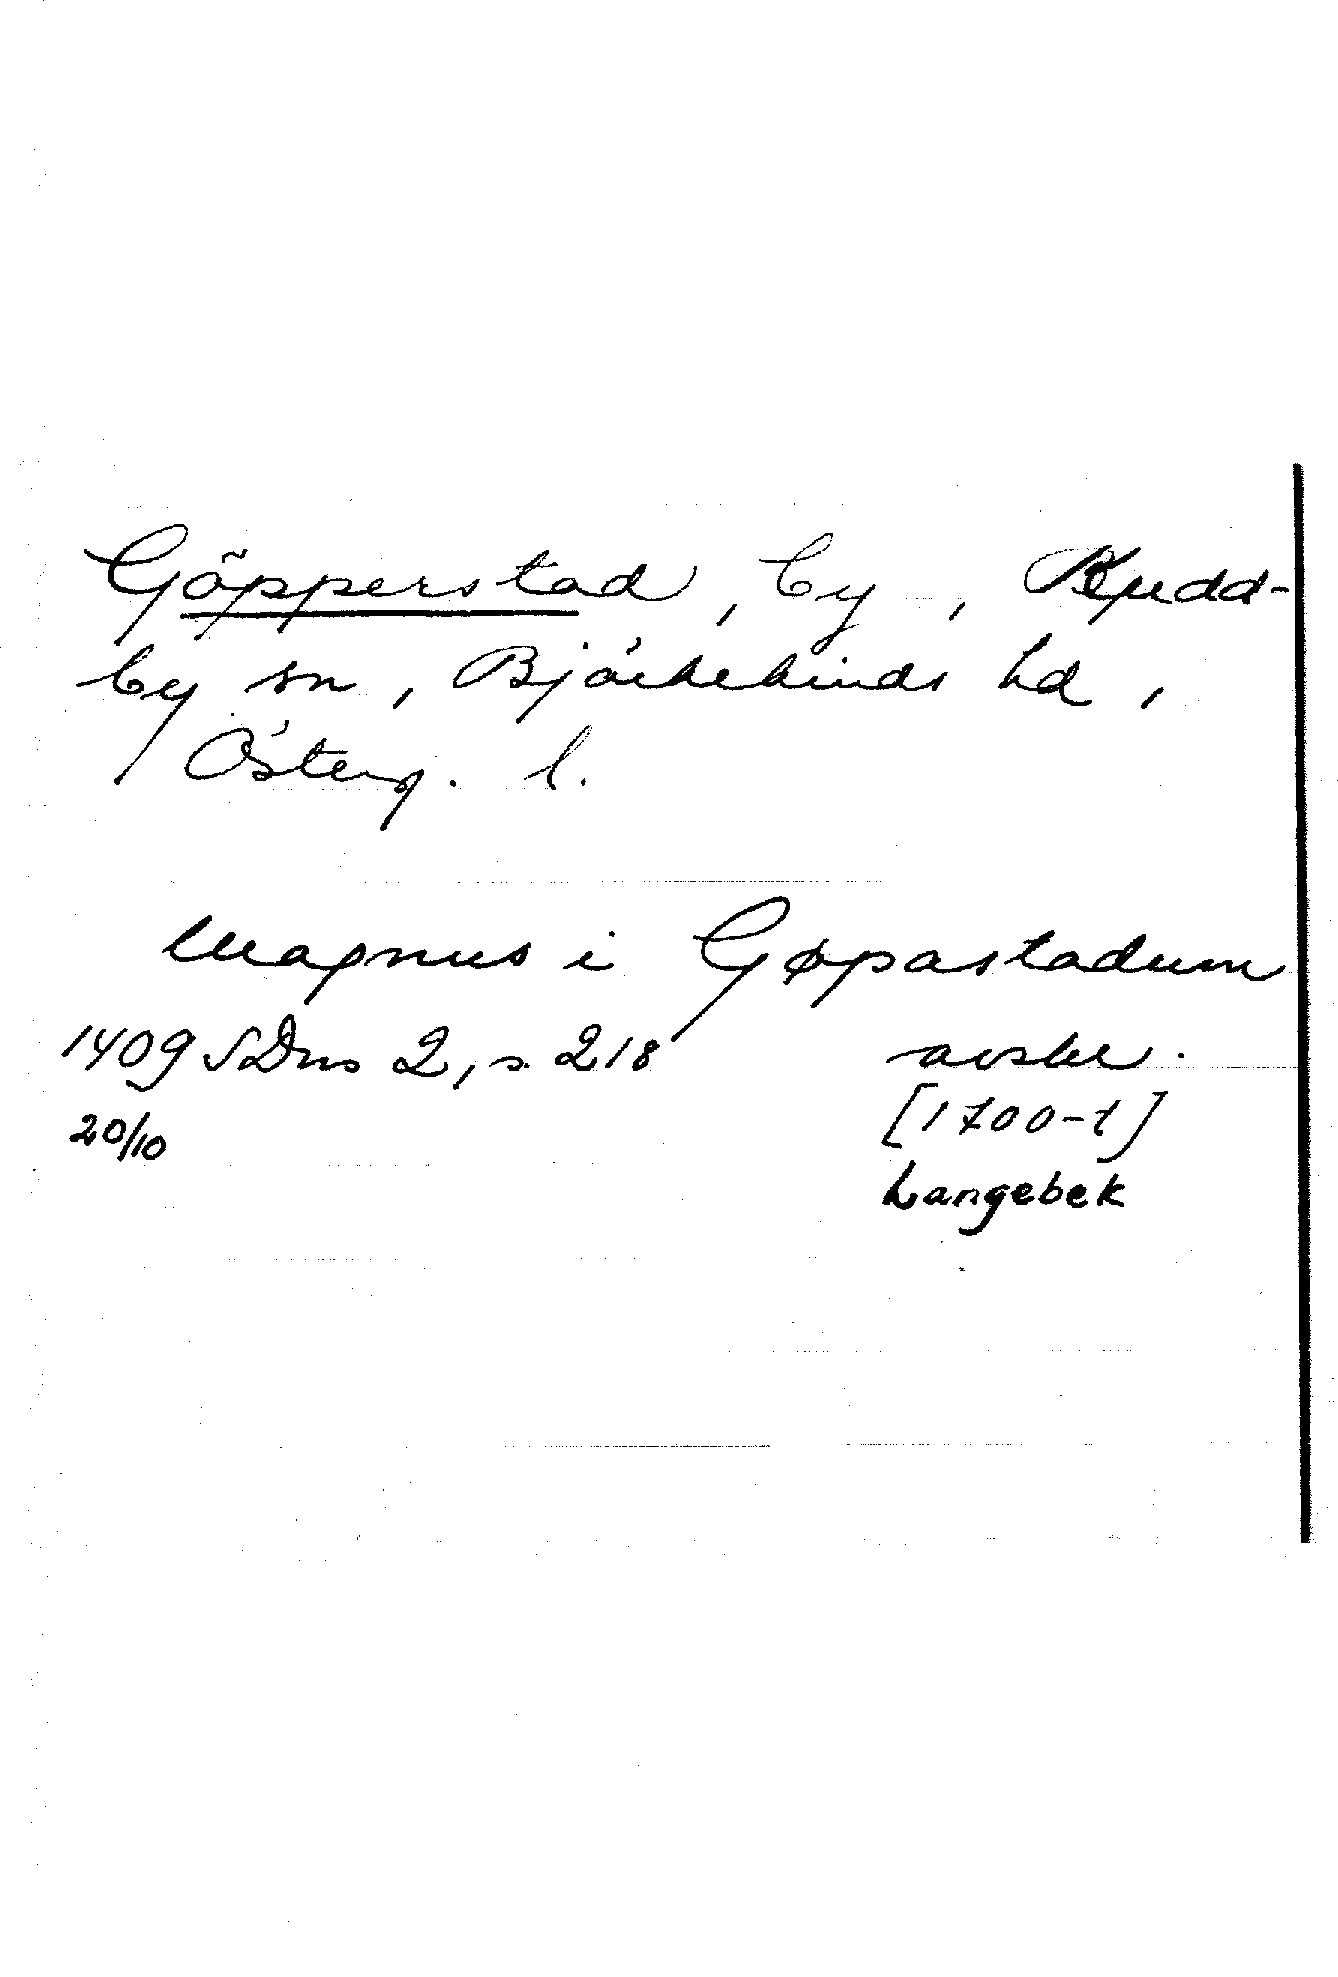 Göpperstad, by, Kudd-
by sn, Björkekinds hd,
Österg. l.
Magnus i Gøpastadum
1409 SDns 2, s. 218 avskr.
20/10 [1700-t]
Langebek